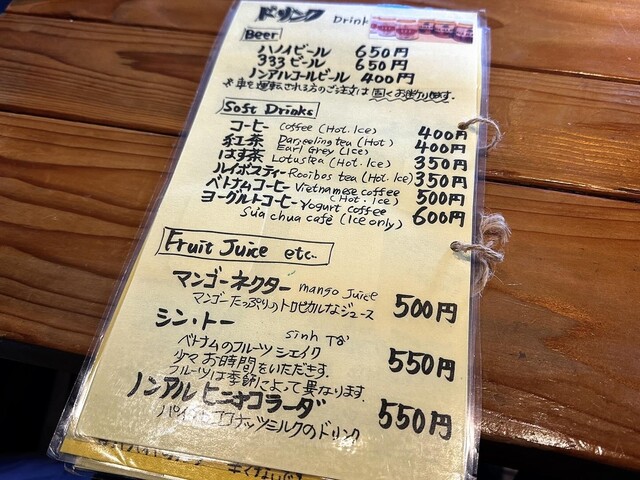 ドリンク Drink
Beer
ハノイビール 650円
333ビール 650円
ノンアルコールビール 400円
※車を運転される方のご注文は固くお断りします。
Soft Drinks
コーヒー Coffee (Hot. Ice) 400円
紅茶 Darjeeling tea (Hot) 400円
Earl Grey (Ice)
はす茶 Lotus tea (Hot. Ice) 350円
ルイボスティー Rooibos tea (Hot. Ice) 350円
ベトナムコーヒー Vietnamese coffee 500円
(Hot. Ice)
ヨーグルトコーヒー Yogurt coffee 600円
sữa chua café (Ice only)
Fruit Juice etc..
マンゴーネクター mango Juice 500円
マンゴーたっぷりのトロピカルなジュース
シン・トー sinh Tố 550円
ベトナムのフルーツシェイク
少々お時間をいただきます.
フルーツは季節によって異なります.
ノンアルピニャコラーダ 550円
パインとココナッツミルクのドリンク